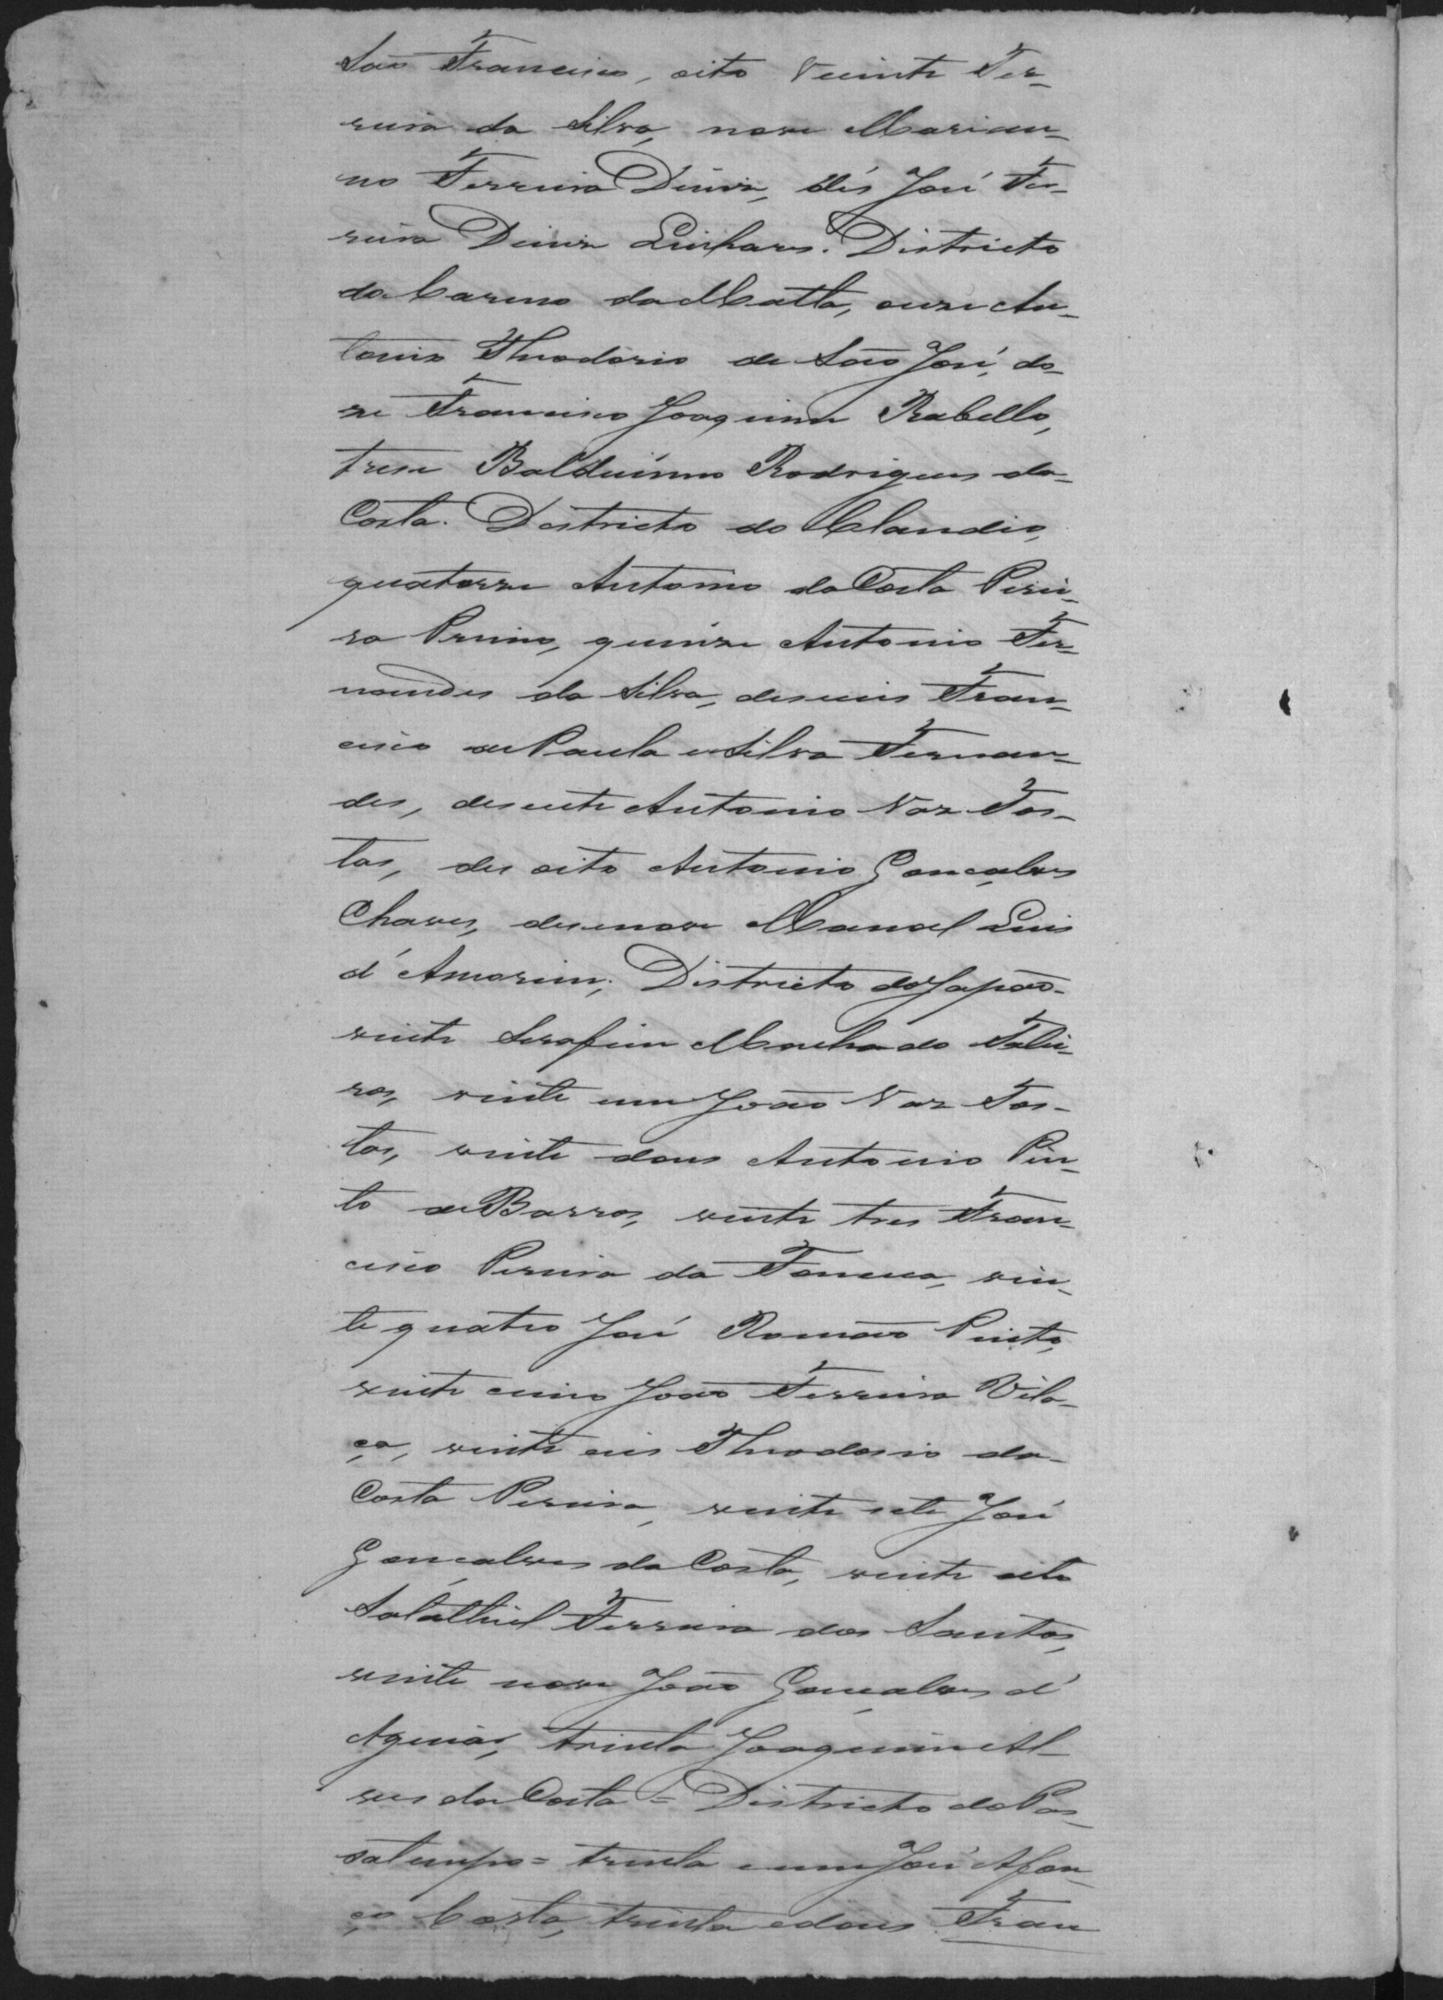 São Francisco, oito Vicente Fer-
reira da Silva, nove Marian-
no Ferreira Diniz, dés José Fer-
reira Diniz Linhares. Districto
do Carmo da Matta, onze An-
tonio Theodorio de São José, do-
ze Francisco Joaquim Rabello,
trese Balduino Rodrigues da
Costa. Districto do Claudio,
quatorze Antonio da Costa Perei-
ra Primo, quinze Antonio Fer-
nandes da Silva, deseseis Fran-
cisco de Paula e Silva Fernan-
des, desesete Antonio Vaz Tos-
tas, des oito Antonio Gonçalves
Chaves, desenove Manoel Luis
d'Amorim; Districto do Japão-
vinte Serafim Machado
vinte um João Vaz Tos-
tas, vinte dous Antonio Pin-
to de Barros, vinte tres Fran-
cisco Pereira da Fonseca, vin-
te quatro José Romão Pinto,
vinte cinco João Ferreira Vila-
ça, vinte seis Theodosio da
Costa Pereira, vinte sete José
Gonçalves da Costa, vinte oito
Salathiel Ferreira dos Santos,
vinte nove João Gonçalves d'
Aguiar, trinta Joaquim Al-
ves da Costa = Districto do Pas-
satempo = trinta e um José Afon-
ço Costa, trinta e dous Fran